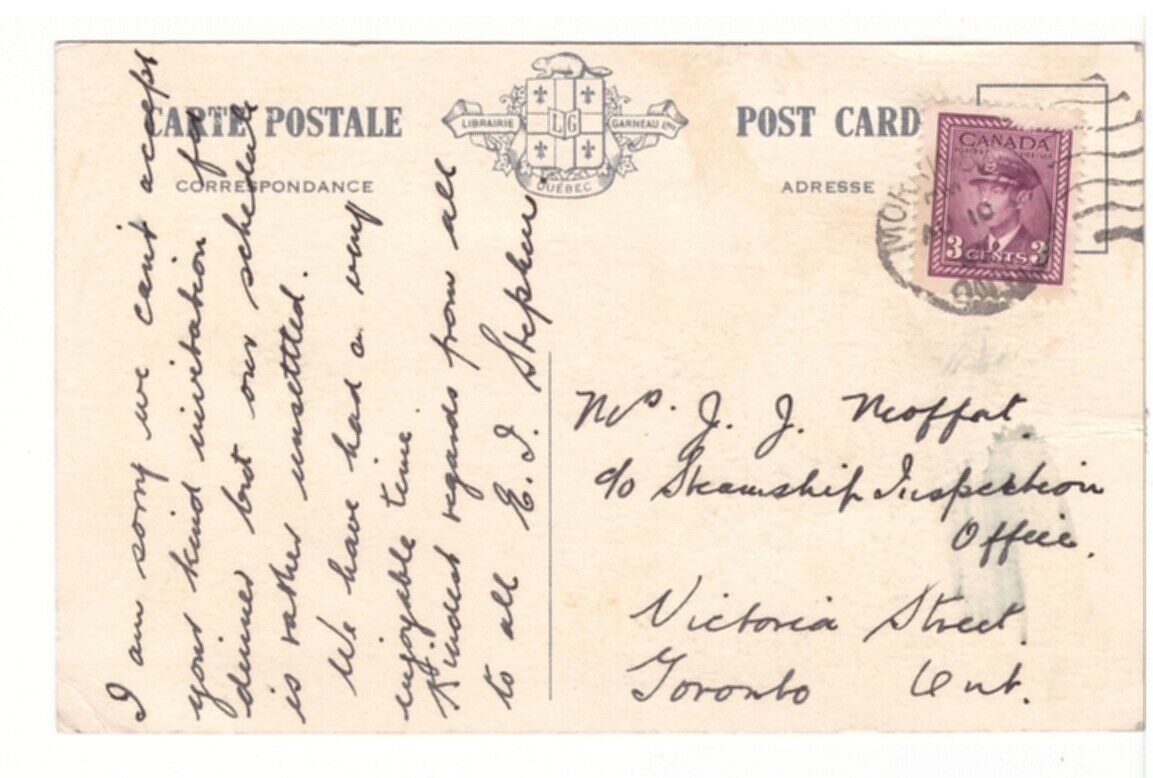 CARTE POSTALE
CORRESPONDANCE
LIBRAIRIE LG GARNEAU Ltée
QUÉBEC
POST CARD
ADRESSE
CANADA
3 CENTS 3
10
I am sorry we can't accept
your kind invitation for
dinner but our schedule
is rather unsettled.
We have had a very
enjoyable time
Kindest regards from all
to all E. I. Stephen.
Mrs. J. J. Moffat.
c/o Steamship Inspection
Office.
Victoria Street.
Toronto Ont.